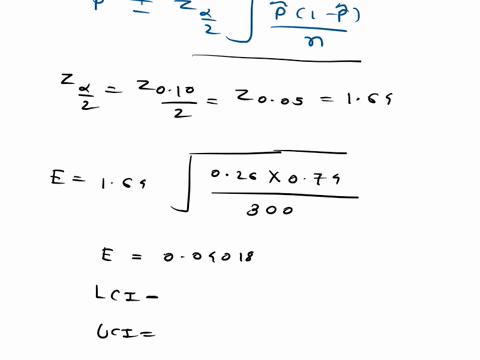 p̂ ± Z α/2 √ p̂(1-p̂)/n
Z α/2 = Z 0.10/2 = Z 0.05 = 1.64
E = 1.64 √ 0.26 × 0.74 / 300
E = 0.04018
LCI -
UCI =